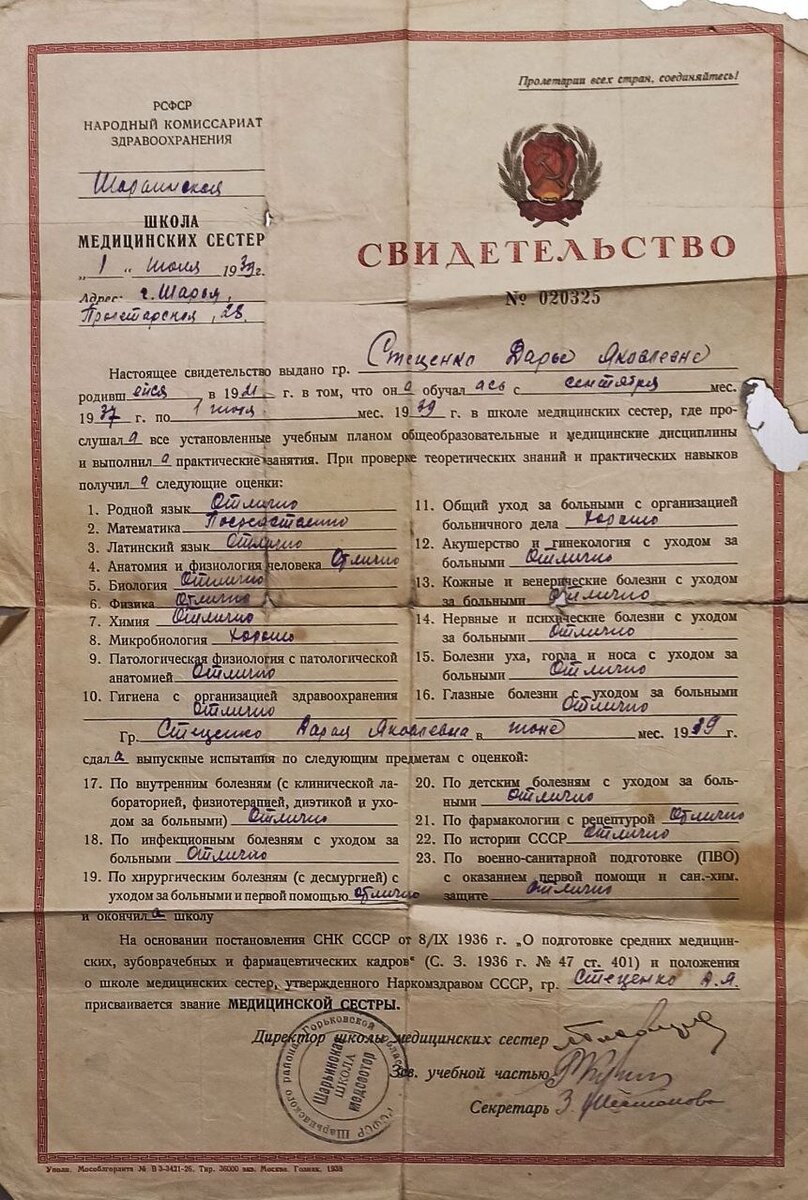 Пролетарии всех стран, соединяйтесь!
РСФСР
НАРОДНЫЙ КОМИССАРИАТ
ЗДРАВООХРАНЕНИЯ
Шарьинская
ШКОЛА
МЕДИЦИНСКИХ СЕСТЕР
„1" июля 1939 г.
Адрес: г. Шарья,
Пролетарская, 28.
СВИДЕТЕЛЬСТВО
№ 020325
Настоящее свидетельство выдано гр. Стеценко Дарье Яковлевне
родившейся в 1921 г. в том, что она обучалась с сентября мес.
1937 г. по 1 июля мес. 1939 г. в школе медицинских сестер, где про-
слушала все установленные учебным планом общеобразовательные и медицинские дисциплины
и выполнила практические занятия. При проверке теоретических знаний и практических навыков
получила следующие оценки:
1. Родной язык Отлично
2. Математика Посредственно
3. Латинский язык Отлично
4. Анатомия и физиология человека Отлично
5. Биология Отлично
6. Физика Отлично
7. Химия Отлично
8. Микробиология хорошо
9. Патологическая физиология с патологической
анатомией Отлично
10. Гигиена с организацией здравоохранения
Отлично
11. Общий уход за больными с организацией
больничного дела хорошо
12. Акушерство и гинекология с уходом за
больными Отлично
13. Кожные и венерические болезни с уходом
за больными Отлично
14. Нервные и психические болезни с уходом
за больными Отлично
15. Болезни уха, горла и носа с уходом за
больными Отлично
16. Глазные болезни с уходом за больными
Отлично
Гр. Стеценко Дарья Яковлевна в июне мес. 1939 г.
сдала выпускные испытания по следующим предметам с оценкой:
17. По внутренним болезням (с клинической ла-
бораторией, физиотерапией, диэтикой и ухо-
дом за больными) Отлично
18. По инфекционным болезням с уходом за
больными Отлично
19. По хирургическим болезням (с десмургией) с
уходом за больными и первой помощью отлично
20. По детским болезням с уходом за боль-
ными Отлично
21. По фармакологии с рецептурой Отлично
22. По истории СССР Отлично
23. По военно-санитарной подготовке (ПВО)
с оказанием первой помощи и сан.-хим.
защите Отлично
и окончила школу
На основании постановления СНК СССР от 8/IX 1936 г. „О подготовке средних медицин-
ских, зубоврачебных и фармацевтических кадров" (С. З. 1936 г. № 47 ст. 401) и положения
о школе медицинских сестер, утвержденного Наркомздравом СССР, гр. Стеценко Д. Я.
присваивается звание МЕДИЦИНСКОЙ СЕСТРЫ.
Директор школы медицинских сестер
Зав. учебной частью
Секретарь З.
РСФСР Шарьинского района Горьковской области
Шарьинская
ШКОЛА
медсестер
Уполн. Мособлгорлита № В 3-3421-26. Тир. 36000 экз. Москва. Гознак. 1938